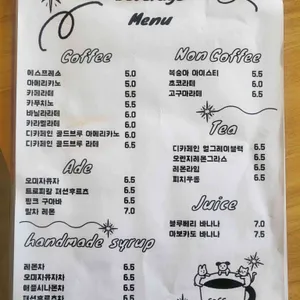 Menu
Coffee
에스프레소 5.0
아메리카노 5.0
카페라떼 5.5
카푸치노 5.5
바닐라라떼 6.0
카라멜라떼 6.0
디카페인 콜드브루 아메리카노 6.0
디카페인 콜드브루 라떼 6.5
Ade
오미자유자 6.5
트로피칼 패션후르츠 6.5
핑크 구아바 6.5
말차 레몬 7.0
handmade syrup
레몬차 6.5
오미자유자차 6.5
애플시나몬차 6.5
패션후르츠차 6.5
Non Coffee
복숭아 아이스티 5.5
초코라떼 6.0
고구마라떼 6.5
Tea
디카페인 얼그레이블랙 6.5
오렌지레몬그라스 6.5
레몬라임 6.5
피치우롱 6.5
Juice
블루베리 바나나 7.0
아보카도 바나나 7.5